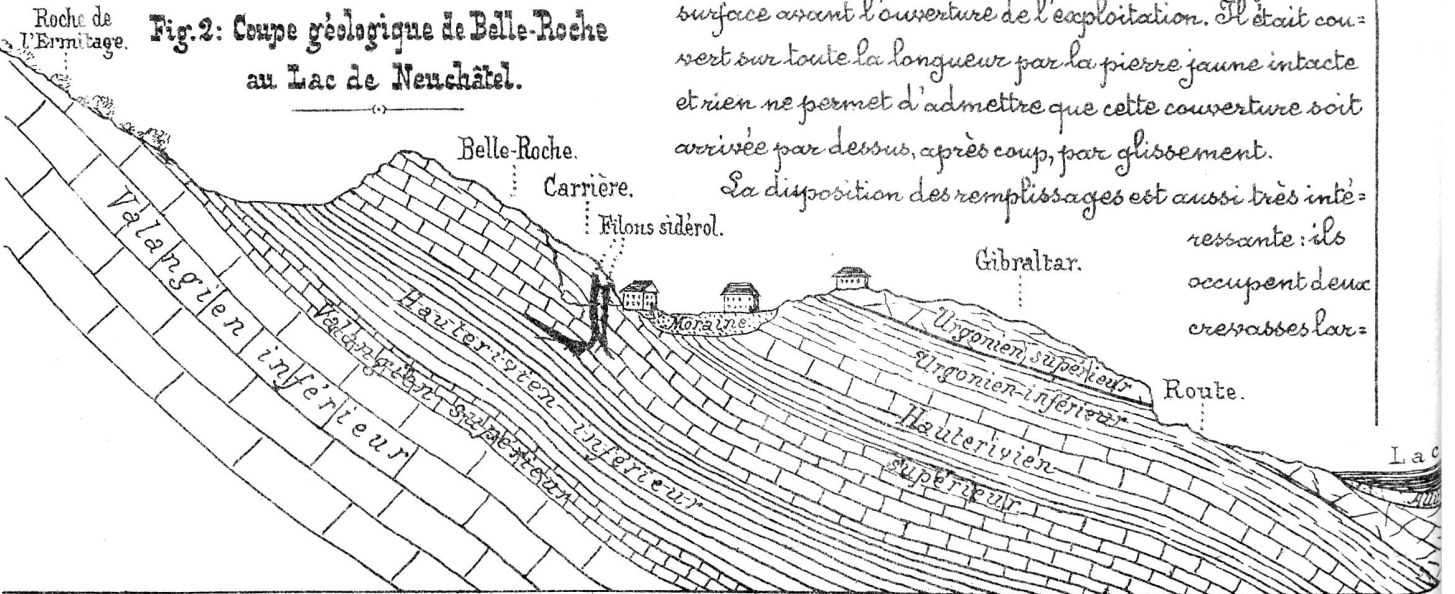 Roche de
l'Ermitage.
Fig. 2: Coupe géologique de Belle-Roche
au Lac de Neuchâtel.
surface avant l'ouverture de l'exploitation. Il était cou=
vert sur toute la longueur par la pierre jaune intacte
et rien ne permet d'admettre que cette couverture soit
arrivée par dessus, après coup, par glissement.
La disposition des remplissages est aussi très inté=
ressante: ils
occupent deux
crevasses lar=
Belle-Roche.
Carrière.
Filons sidérol.
Gibraltar.
Moraine
Route.
Lac
Valangien inférieur
Valangien supérieur
Hauterivien inférieur
Urgonien supérieur
Urgonien-inférieur
Hauterivien
supérieur